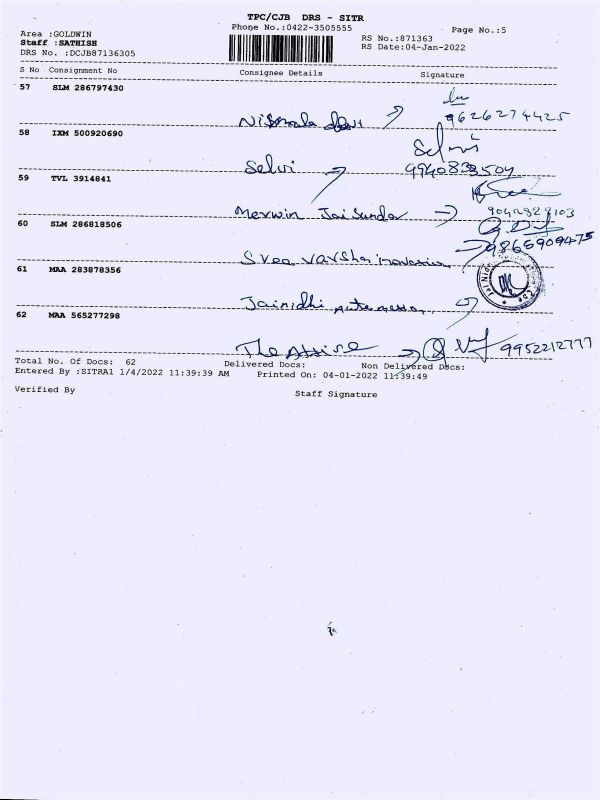 TPC/CJB DRS - SITR
Phone No.:0422-3505555
Page No.:5
Area :GOLDWIN
RS No.:871363
Staff :SATHISH
RS Date:04-Jan-2022
DRS No. :DCJB87136305
S No Consignment No Consignee Details Signature
57 SLM 286797430
Nirmala devi 9626274425
58 IXM 500920690
Selvi
Selvi 9940838504
59 TVL 3914841
Merwin Jai Sundar 9042829103
60 SLM 286818506
Sree Varsha 9865909475
61 MAA 283878356
Jainidhi automation
62 MAA 565277298
The Attire 9952212777
Total No. Of Docs: 62 Delivered Docs: Non Delivered Docs:
Entered By :SITRA1 1/4/2022 11:39:39 AM Printed On: 04-01-2022 11:39:49
Verified By Staff Signature